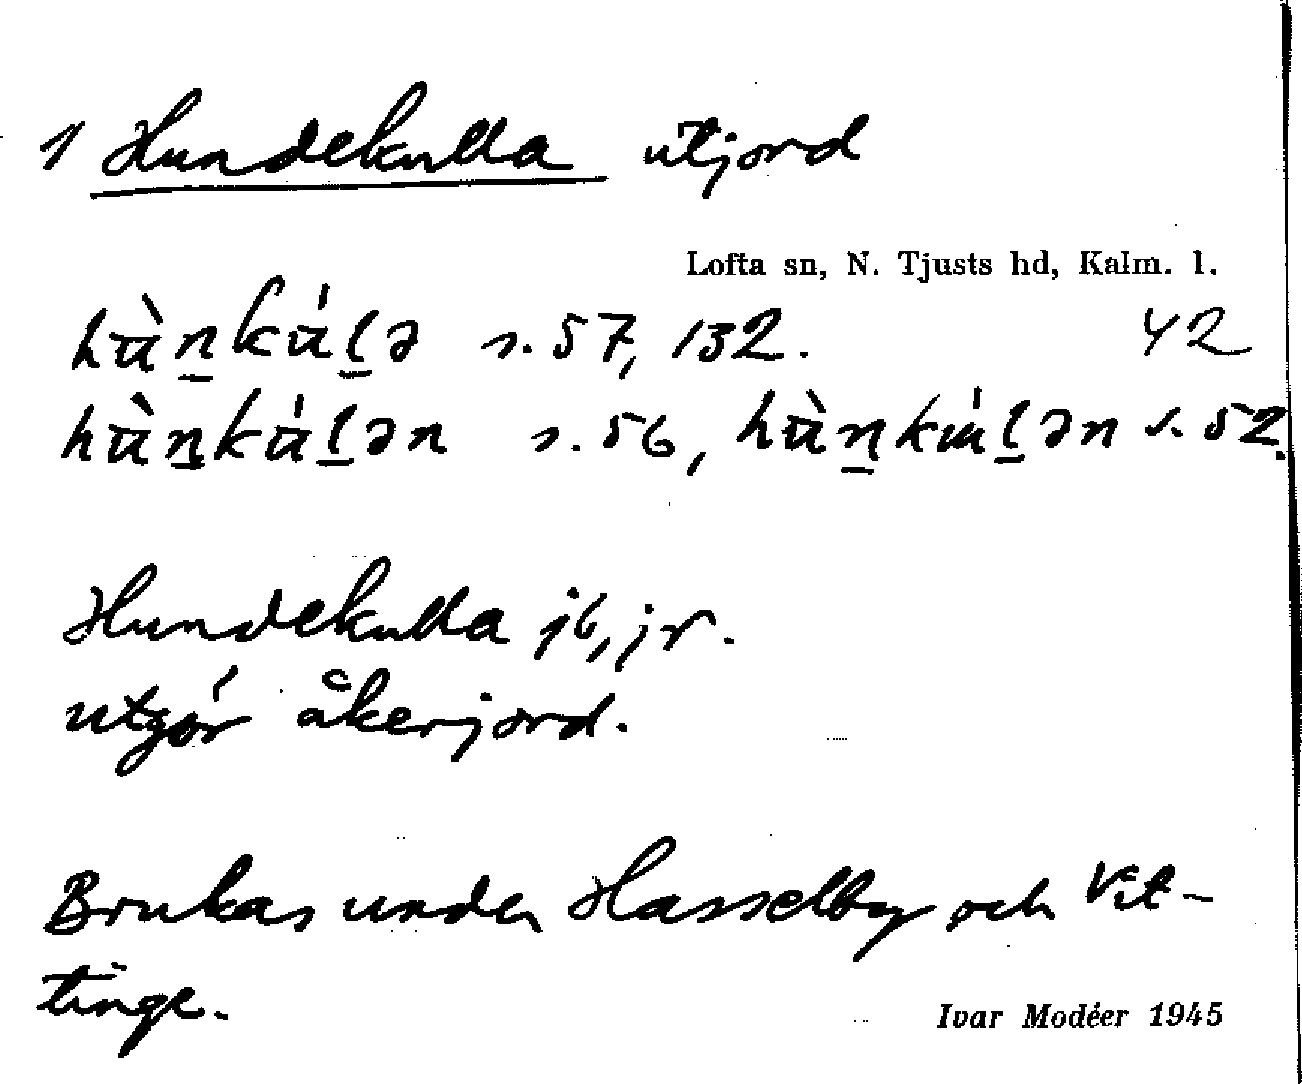 1/ Hundekulla utjord
Lofta sn, N. Tjusts hd, Kalm. l.
hùn̠kúl̠ə s. 57, 132. 42
hùn̠kúl̠ən s. 56, hùn̠kúl̠ən s. 52.
Hundekulla jb, jr.
utgör åkerjord.
Brukas under Hasselby och Vit-
tinge.
Ivar Modéer 1945